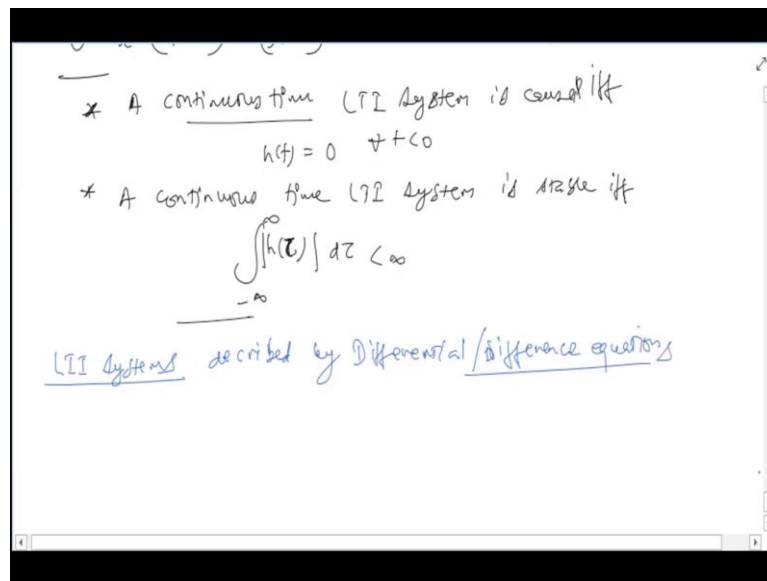 * A continuous time LTI system is causal iff
h(t) = 0 ∀ t<0
* A continuous time LTI system is stable iff
∫_{-∞}^{∞} |h(τ)| dτ < ∞
LTI systems decribed by Differential/Difference equations